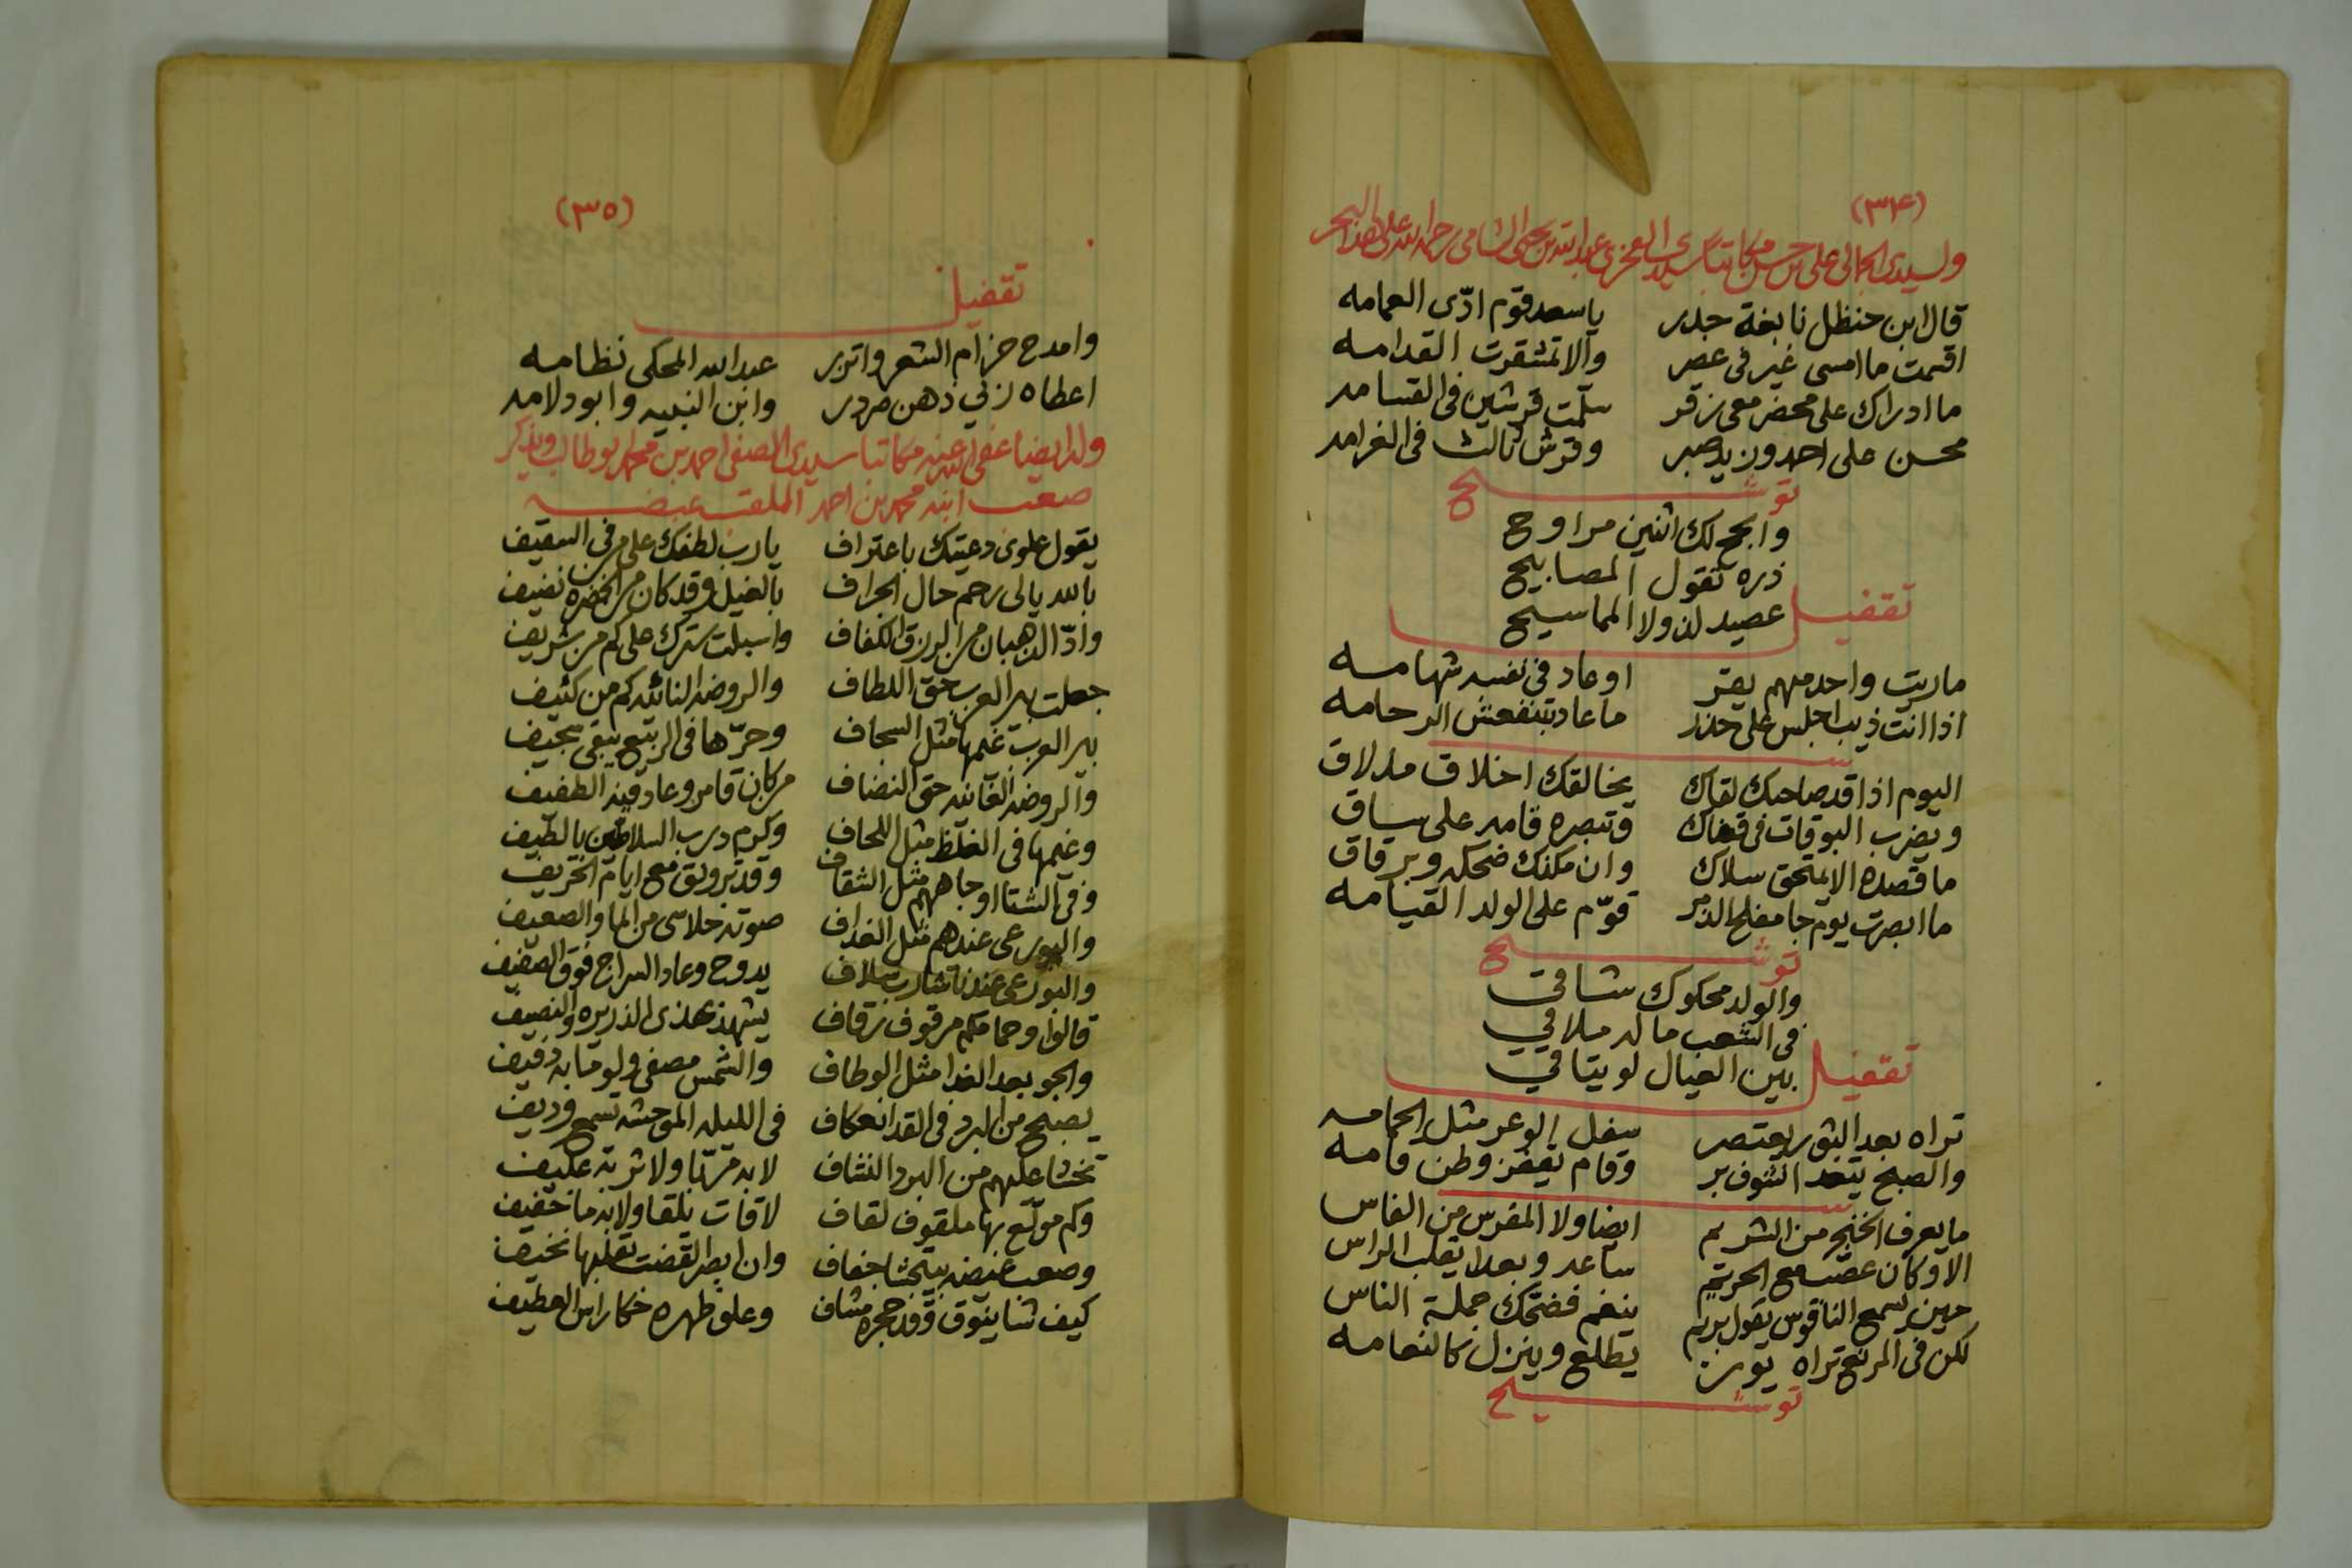 (٣٤)
ولسيدي الجمالي علي بن حسن مكاتبا سيدي الفخري عبدالله بن يحيى الشامي رحمه الله على هذا البحر
قال ابن حنظل نابغة جدر يا سعد قوم ادّى العمامه
اقسمت ما امسي غير في عصر والا تمشقرت القدامه
ما ادراك على محضر معي زقر سلّمت قرشين في القسامه
محسن على احد ون يد صبر وقرش ثالث في الغرامه
توشيح
وابجح لك اثنين مراوح
ذره تقول المصابيح
عصيد لن ولا المماسيح
تقفيل
ماريت واحد مهم يقر او عاد في نفسه شهامه
اذا انت ذيب اجلس على حذر ما عاد بتنفعش الرحامه
بيت
اليوم اذا قد صاحبك لقاك يخالقك اخلاق ملاق
ويضرب البوقات في قفاك وتبصره قامه على ساق
ما قصده الا يمتحق سلاك وان مكنك ضحكه وبرقاق
ما ابصرت يوم جا مفلح الذمر قوّم على الولد القيامه
توشيح
والولد محكوك شافي
في الشعب ماله ملافي
بين العيال لو يتافي
تقفيل
تراه بعد البثور يعتصر سفل الوعر مثل الحمامه
والصبح يتعد الشوف بر وقام يقفز وطن قامه
بيت
ما يعرف الخنجر من الشريم ايضا ولا المقرس من الفاس
الا وكان عصّب مع الحريم ساعه وبعدا يقلب الراس
حين يسمع الناقوس يقول بريم ينغم فضحك جملة الناس
لكن في المرنع تراه يوزن يطلع وينزل كالنعامه
توشيح
(٣٥)
تقفيل
وامدح حزام الشعر واتزر عبدالله المحكي نظامه
اعطاه زني ذهن مردر وابن النبيه وابو دلامه
وله ايضا عفى الله عنه مكاتبا سيدي الصفي احمد بن محمد ابو طالب ويذكر
صعب ابنه محمد بن احمد الملقب غيضه
يقول علوي دعيتك باعتراف يا رب لطفك على من في السقيف
بالله يالي رحم حال الجراف بالغيل وقد كان من الخضره نضيف
وادّا الذهبان من الرزق الكفاف واسبلت سترك على كم من شريف
جعلت بير العرب حق اللطاف والروضه النائيه كم من كثيف
بير العرب غيمها مثل السجاف وحرّها في الربيع يبقى سجيف
والروضه الفانيه حق النضاف من كان قامر وعاد فيه الطفيف
وغيمها في الغلظ مثل اللحاف وكرم درب السلاطين بالطيف
وفي الشتا اوجاههم مثل الثقاف وقد تزويق مع ايام الخريف
والبورعي عندهم مثل الغداف صوته خلاسى من الما والصعيف
والبورعي عندنا شارب سلاف يدوح وعاد السراج فوق الصفيف
قالوا وحمامكم مرقوف زقاف يشهد بهذي الذريره والنصيف
والجو بعد الغدا مثل الوطاف والشمس مصفي ولو ما به دفيف
يصبح من البرد في القدا انعكاف في الليله الموحشه تسمع وريف
تخشا عليهم من البرد النشاف لا به مربّا ولا ثربه عكيف
وكم مولّع بها ملقوف لقاف لا قات يلقا ولا به ما خفيف
وصعب غيضه بيتخشا جفاف وان ابصر القضب تقلبها نخيف
كيف شنا ينوق وقد حجره مشاف وعلق ظهره خكار اس العطيف